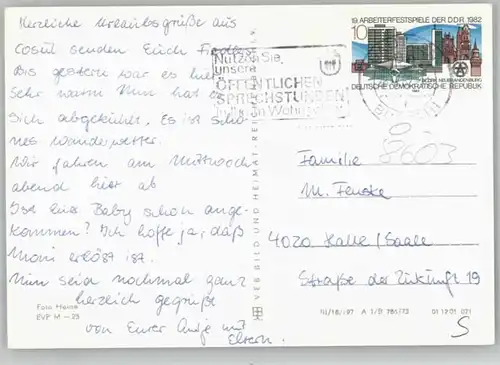 Herzliche Urlaubsgrüße aus
senden Euch
Bis gestern war es hier
sehr warm Nun hat es
sich abgekühlt. Es ist schö-
nes Wanderwetter.
Wir fahren am Mittwoch
abend hier ab
Ist Euer Baby schon ange-
kommen? Ich hoffe ja, daß
Moni erlöst ist.
Nun seid nochmal ganz
herzlich gegrüßt
von Eurer Antje mit
Eltern.
Foto Heine
EVP M –25
VEB BILD UND HEIMAT
Nutzen Sie
unsere
ÖFFENTLICHEN
SPRECHSTUNDEN
19. ARBEITERFESTSPIELE DER DDR 1982
10
BEZIRK NEUBRANDENBURG
DEUTSCHE DEMOKRATISCHE REPUBLIK
8603
Familie
M. Fenske
4020 Halle/Saale
Straße der Zukunft 19
A 1/B 786/73
01 12 01 021
S